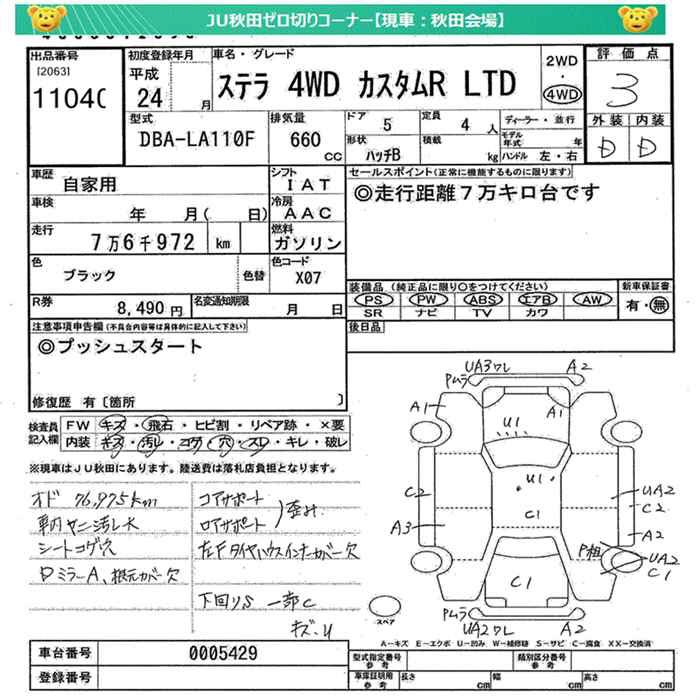 JU秋田ゼロ切りコーナー【現車：秋田会場】
出品番号
[2063]
1104C
初度登録年月
平成
24 月
車名・グレード
ステラ 4WD カスタムR LTD
2WD
・
4WD
評価点
3
外装 内装
D D
型式
DBA-LA110F
排気量
660
cc
ドア
5
定員
4 人
形状
ハッチB
積載
kg
ディーラー・並行
モデル年式 年
ハンドル 左・右
車歴
自家用
シフト
IAT
車検
年 月( 日)
冷房
AAC
走行
7万6千972 km
燃料
ガソリン
色
ブラック
色替
色コード
X07
R券
8,490 円
名変通知期限
月 日
セールスポイント(正常に機能するものに限ります)
◎走行距離7万キロ台です
装備品 (純正品に限り○をつけてください)
PS PW ABS エアB AW
SR ナビ TV カワ
新車保証書
有・無
後日品
注意事項申告欄(不具合内容等は具体的に記入して下さい)
◎プッシュスタート
修復歴 有〔箇所 〕
検査員記入欄
FW キズ・飛石・ヒビ割・リペア跡・×要
内装 キズ・汚レ・コゲ・穴・スレ・キレ・破レ
※現車はJU秋田にあります。陸送費は落札店負担となります。
オド 76,975km
車内ヤニ汚レ大
シートコゲ穴
DミラーA、根元カバー欠
コアサポート
ロアサポート
歪み
左Fタイヤハウスインナーカバー欠
下回りS 一部C
キズ・U
UA3ワレ A2
Pムラ
A1 U1 A1
U1
C2 C1 UA2
C2
A3 A2
P粗 UA2
C1
C1
Pムラ
UA2ワレ A2
スペア
A-キズ E-エクボ U-凹み W-補修跡 S-サビ C-腐食 XX-交換済
車台番号 0005429
登録番号
型式指定番号
参考
類別区分番号
参考
車庫証明用
参考
長さ cm 幅 cm 高さ cm